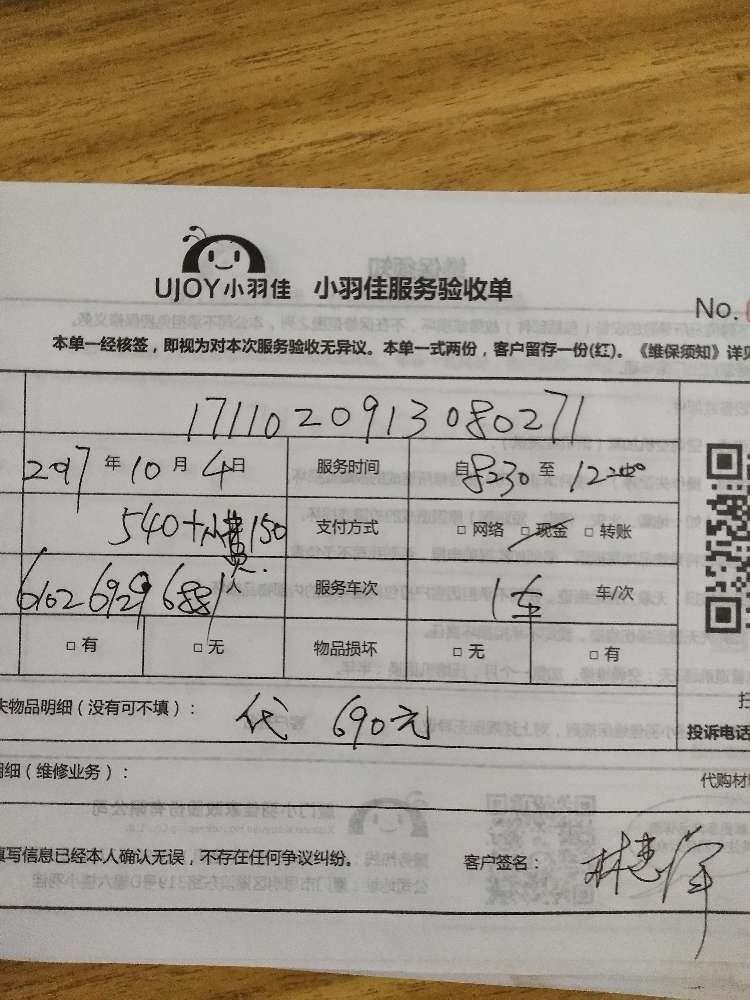 UJOY小羽佳 小羽佳服务验收单
No.
本单一经核签，即视为对本次服务验收无异议。本单一式两份，客户留存一份(红)。《维保须知》详见
1711020913080271
2017年10月4日 服务时间 自8230至12
540+小费150 支付方式 □网络 □现金 □转账
服务车次 1车 车/次
□有 □无 物品损坏 □无 □有
失物品明细（没有可不填）： 代 690元
投诉电话
明细（维修业务）：
代购材
填写信息已经本人确认无误，不存在任何争议纠纷。 客户签名：